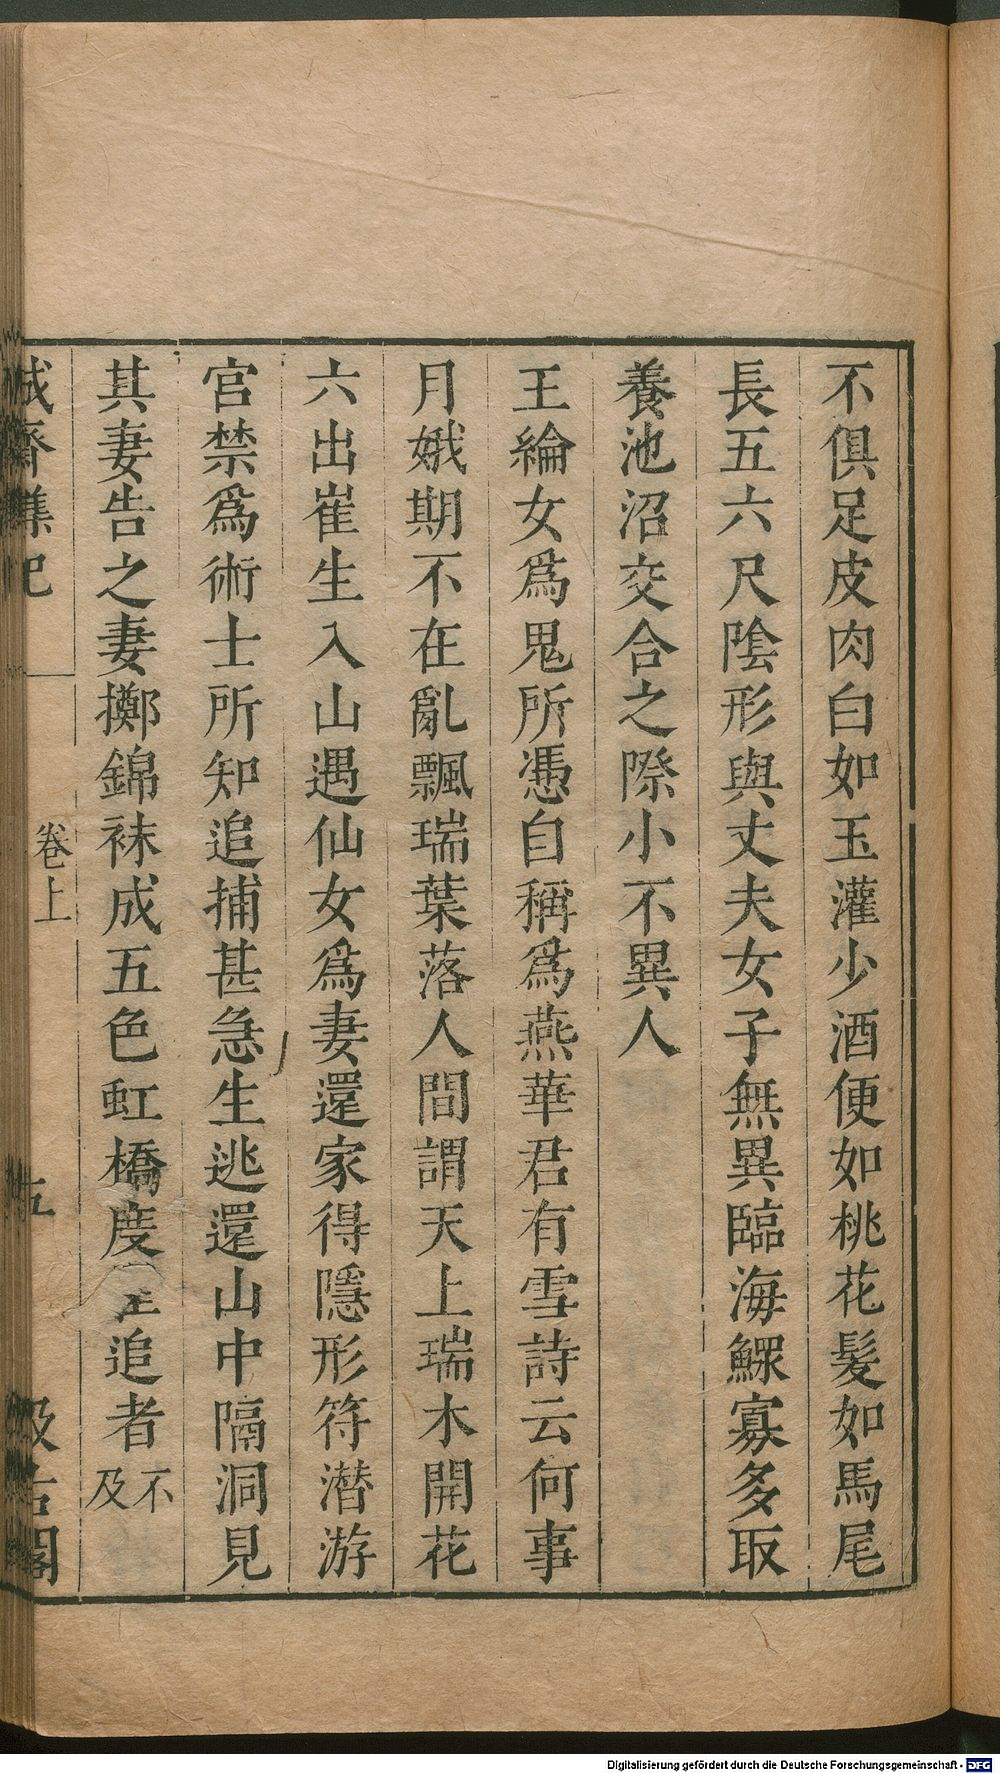 不俱足皮肉白如玉灌少酒便如桃花髮如馬尾
長五六尺陰形與丈夫女子無異臨海鰥寡多取
養池沼交合之際小不異人
王綸女爲鬼所憑自稱爲燕華君有雪詩云何事
月娥期不在亂飄瑞葉落人間謂天上瑞木開花
六出崔生入山遇仙女爲妻還家得隱形符潜游
宫禁爲術士所知追捕甚急生逃還山中隔洞見
其妻告之妻擲錦袜成五色虹橋度 追者不及
誠齋雜記 卷上 五 汲古閣
Digitalisierung gefördert durch die Deutsche Forschungsgemeinschaft - DFG